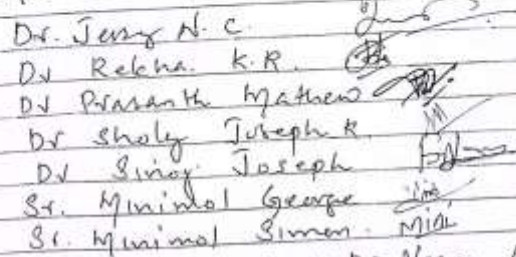 Dr. Jerry N. C.
Dr Rekha. K.R.
Dr Prasanth Mathew
Dr Sholy Joseph K.
Dr Sinoy Joseph
Sr. Minimol George
Sr. Minimol Simon. Mini